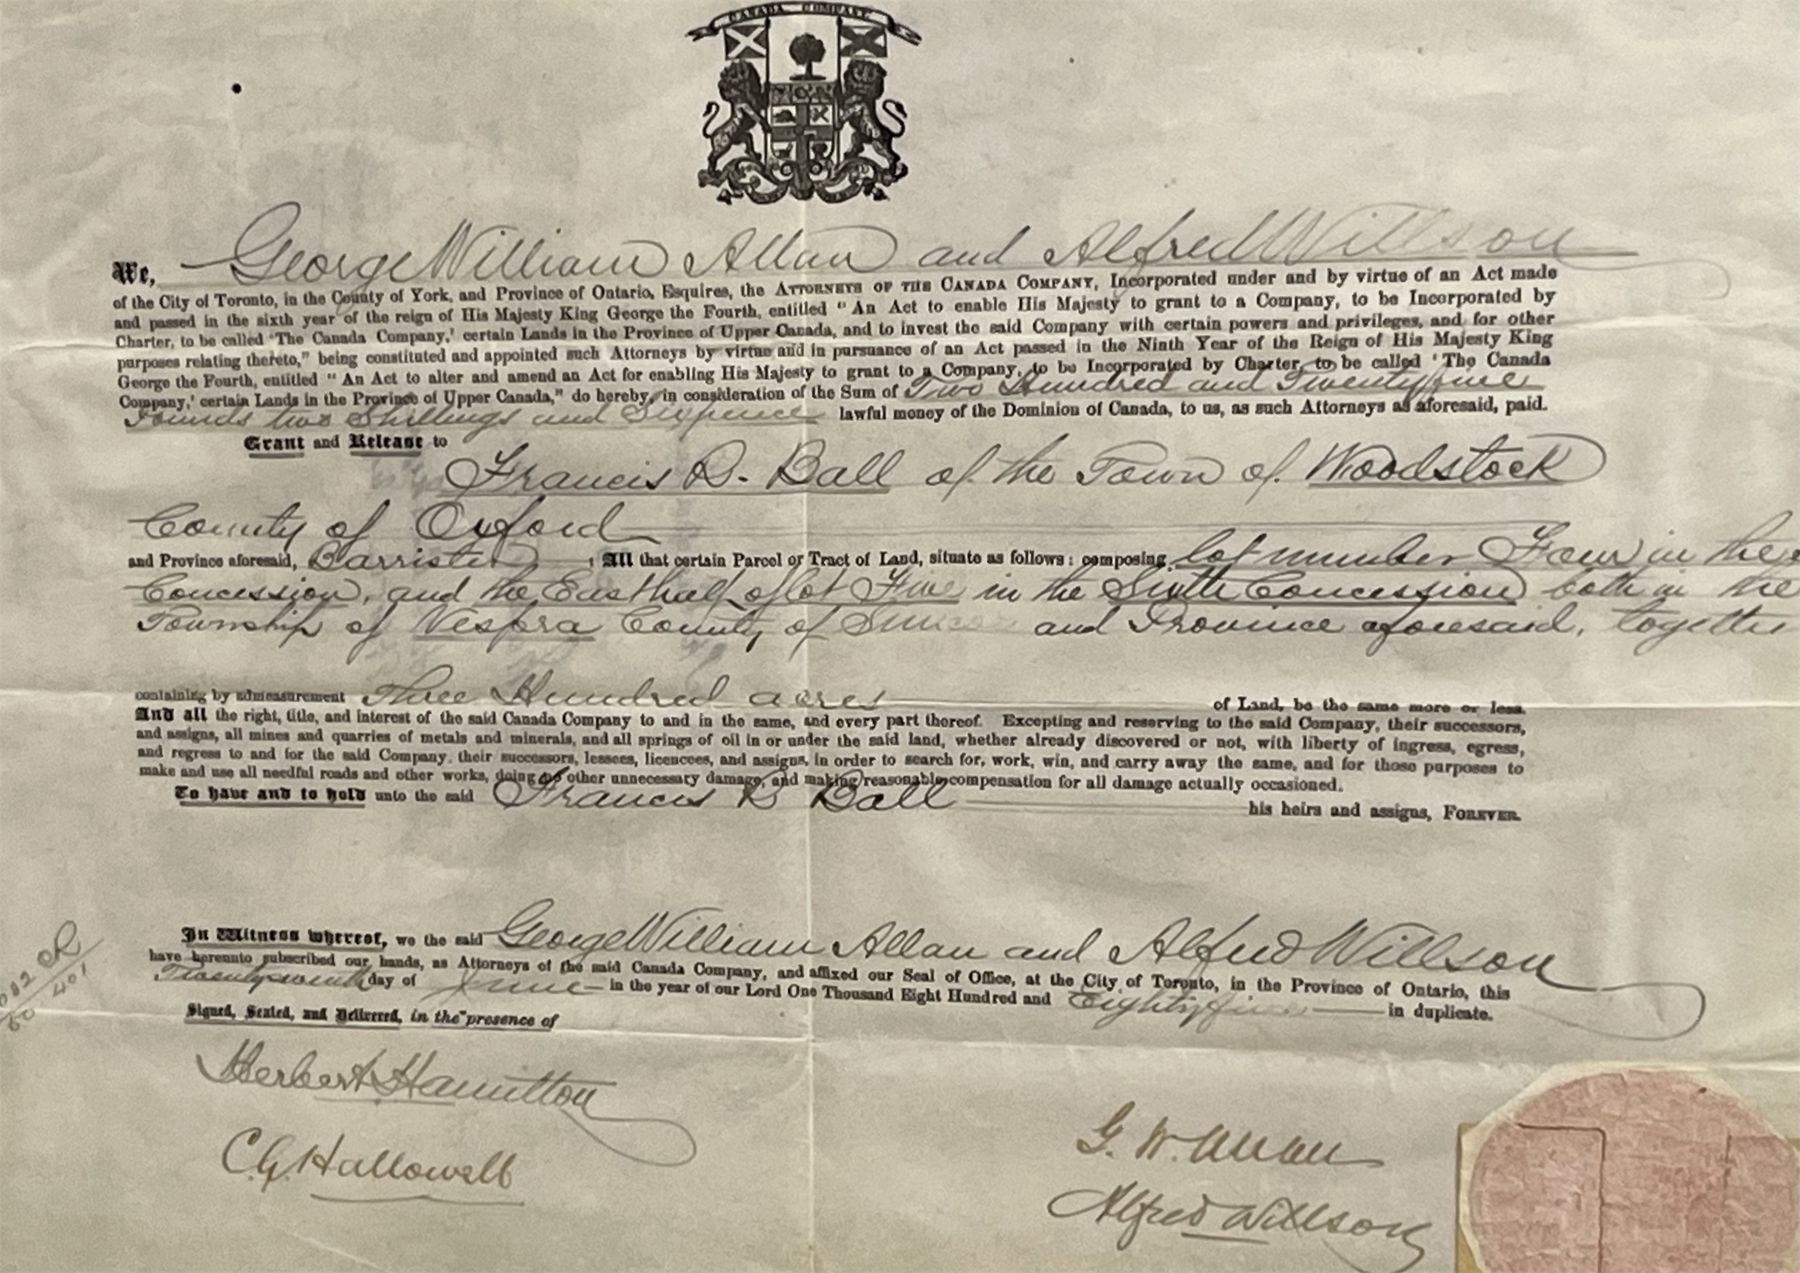 CANADA COMPANY
We, George William Allan and Alfred Willson
of the City of Toronto, in the County of York, and Province of Ontario, Esquires, the ATTORNEYS OF THE CANADA COMPANY, Incorporated under and by virtue of an Act made
and passed in the sixth year of the reign of His Majesty King George the Fourth, entitled "An Act to enable His Majesty to grant to a Company, to be Incorporated by
Charter, to be called 'The Canada Company,' certain Lands in the Province of Upper Canada, and to invest the said Company with certain powers and privileges, and for other
purposes relating thereto," being constituted and appointed such Attorneys by virtue and in pursuance of an Act passed in the Ninth Year of the Reign of His Majesty King
George the Fourth, entitled "An Act to alter and amend an Act for enabling His Majesty to grant to a Company, to be Incorporated by Charter, to be called 'The Canada
Company,' certain Lands in the Province of Upper Canada," do hereby, in consideration of the Sum of Two Hundred and Twenty five
Pounds two Shillings and Sixpence lawful money of the Dominion of Canada, to us, as such Attorneys as aforesaid, paid.
Grant and Release to
Francis R. Ball of the Town of Woodstock
County of Oxford
and Province aforesaid, Barrister ; All that certain Parcel or Tract of Land, situate as follows: composing lot number Four in the
Concession, and the East half of lot Five in the Sixth Concession both in the
Township of Vespra County of Simcoe and Province aforesaid, together
containing by admeasurement Three Hundred acres of Land, be the same more or less.
And all the right, title, and interest of the said Canada Company to and in the same, and every part thereof. Excepting and reserving to the said Company, their successors,
and assigns, all mines and quarries of metals and minerals, and all springs of oil in or under the said land, whether already discovered or not, with liberty of ingress, egress,
and regress to and for the said Company, their successors, lessees, licencees, and assigns, in order to search for, work, win, and carry away the same, and for those purposes to
make and use all needful roads and other works, doing no other unnecessary damage, and making reasonable compensation for all damage actually occasioned.
To have and to hold unto the said Francis R Ball his heirs and assigns, FOREVER.
In Witness whereof, we the said George William Allan and Alfred Willson
have hereunto subscribed our hands, as Attorneys of the said Canada Company, and affixed our Seal of Office, at the City of Toronto, in the Province of Ontario, this
Twenty seventh day of June in the year of our Lord One Thousand Eight Hundred and Eighty five in duplicate.
Signed, Sealed, and Delivered, in the presence of
Herbert Hamilton
C. G. Hallowell
G. W. Allan
Alfred Willson
401